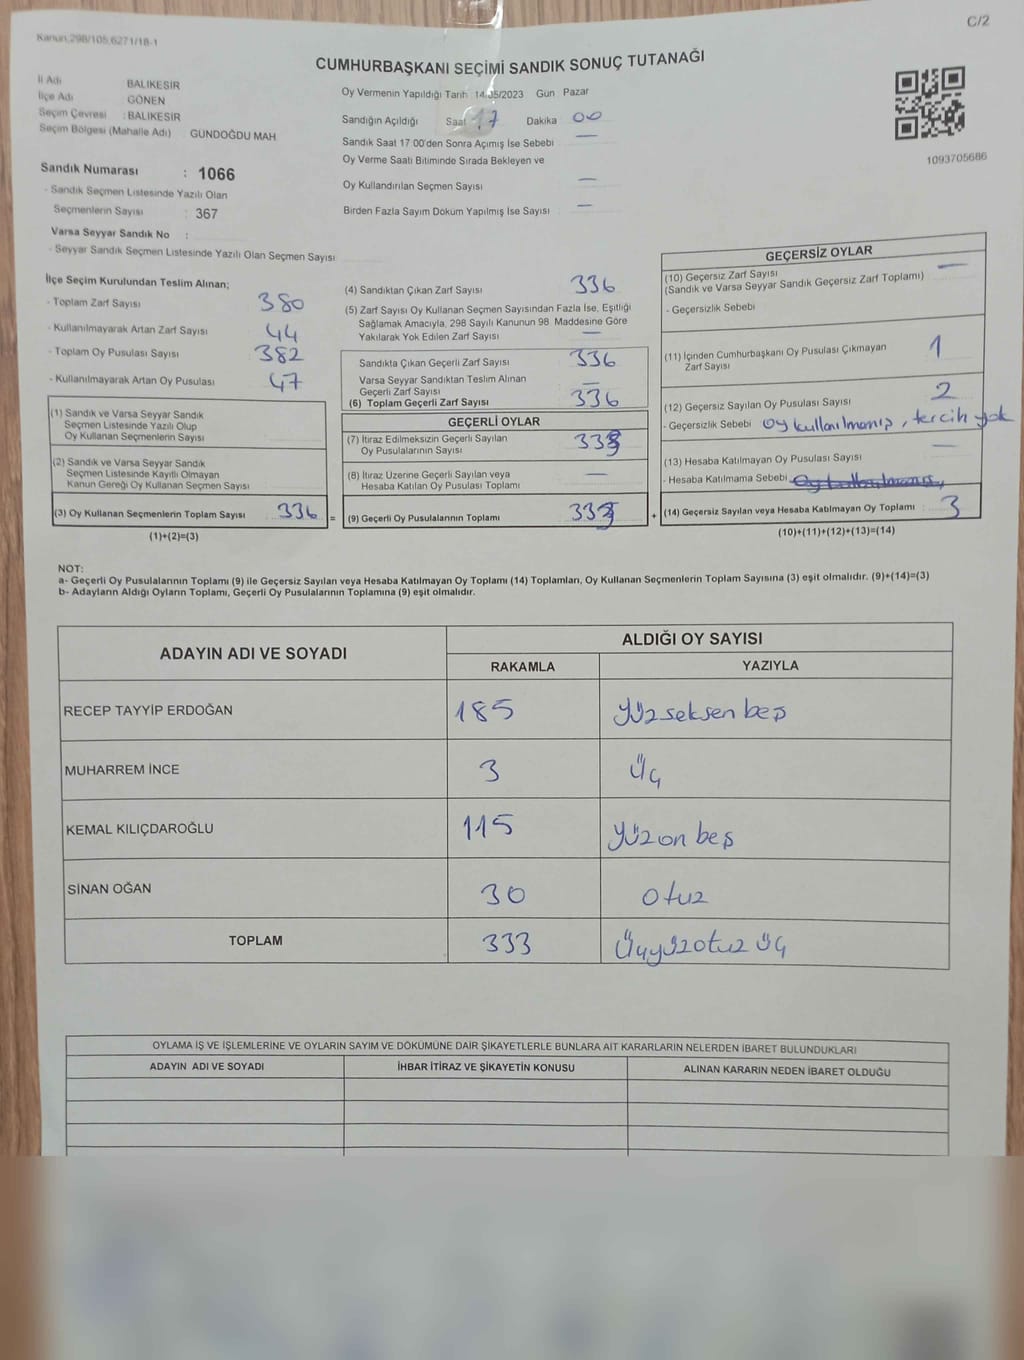 Kanun,298/105,6271/18-1
C/2
CUMHURBAŞKANI SEÇİMİ SANDIK SONUÇ TUTANAĞI
İl Adı BALIKESİR
İlçe Adı GÖNEN
Seçim Çevresi : BALIKESİR
Seçim Bölgesi (Mahalle Adı) : GÜNDOĞDU MAH
Sandık Numarası : 1066
- Sandık Seçmen Listesinde Yazılı Olan
Seçmenlerin Sayısı : 367
Varsa Seyyar Sandık No :
- Seyyar Sandık Seçmen Listesinde Yazılı Olan Seçmen Sayısı
Oy Vermenin Yapıldığı Tarih : 14.05/2023 Gün Pazar
Sandığın Açıldığı Saat 17 Dakika 00
Sandık Saat 17 00'den Sonra Açımış İse Sebebi —
Oy Verme Saati Bitiminde Sırada Bekleyen ve
Oy Kullandırılan Seçmen Sayısı —
Birden Fazla Sayım Döküm Yapılmış İse Sayısı —
1093705686
İlçe Seçim Kurulundan Teslim Alınan;
- Toplam Zarf Sayısı 380
- Kullanılmayarak Artan Zarf Sayısı 44
- Toplam Oy Pusulası Sayısı 382
- Kullanılmayarak Artan Oy Pusulası 47
(1) Sandık ve Varsa Seyyar Sandık
Seçmen Listesinde Yazılı Olup
Oy Kullanan Seçmenlerin Sayısı
(2) Sandık ve Varsa Seyyar Sandık
Seçmen Listesinde Kayıtlı Olmayan
Kanun Gereği Oy Kullanan Seçmen Sayısı
(3) Oy Kullanan Seçmenlerin Toplam Sayısı 336 =
(1)+(2)=(3)
(4) Sandıktan Çıkan Zarf Sayısı 336
(5) Zarf Sayısı Oy Kullanan Seçmen Sayısından Fazla İse, Eşitliği
Sağlamak Amacıyla, 298 Sayılı Kanunun 98. Maddesine Göre
Yakılarak Yok Edilen Zarf Sayısı —
Sandıkta Çıkan Geçerli Zarf Sayısı 336
Varsa Seyyar Sandıktan Teslim Alınan
Geçerli Zarf Sayısı —
(6) Toplam Geçerli Zarf Sayısı 336
GEÇERLİ OYLAR
(7) İtiraz Edilmeksizin Geçerli Sayılan
Oy Pusulalarının Sayısı 333
(8) İtiraz Üzerine Geçerli Sayılan veya
Hesaba Katılan Oy Pusulası Toplamı —
(9) Geçerli Oy Pusulalarının Toplamı 333 +
GEÇERSİZ OYLAR
(10) Geçersiz Zarf Sayısı —
(Sandık ve Varsa Seyyar Sandık Geçersiz Zarf Toplamı)
- Geçersizlik Sebebi
(11) İçinden Cumhurbaşkanı Oy Pusulası Çıkmayan 1
Zarf Sayısı
(12) Geçersiz Sayılan Oy Pusulası Sayısı 2
- Geçersizlik Sebebi Oy kullanılmamış, tercih yok
(13) Hesaba Katılmayan Oy Pusulası Sayısı —
- Hesaba Katılmama Sebebi
(14) Geçersiz Sayılan veya Hesaba Katılmayan Oy Toplamı : 3
(10)+(11)+(12)+(13)=(14)
NOT:
a- Geçerli Oy Pusulalarının Toplamı (9) ile Geçersiz Sayılan veya Hesaba Katılmayan Oy Toplamı (14) Toplamları, Oy Kullanan Seçmenlerin Toplam Sayısına (3) eşit olmalıdır. (9)+(14)=(3)
b- Adayların Aldığı Oyların Toplamı, Geçerli Oy Pusulalarının Toplamına (9) eşit olmalıdır.
ADAYIN ADI VE SOYADI ALDIĞI OY SAYISI
RAKAMLA YAZIYLA
RECEP TAYYİP ERDOĞAN 185 Yüzseksen beş
MUHARREM İNCE 3 Üç
KEMAL KILIÇDAROĞLU 115 Yüzon beş
SİNAN OĞAN 30 Otuz
TOPLAM 333 Üçyüzotuz üç
OYLAMA İŞ VE İŞLEMLERİNE VE OYLARIN SAYIM VE DÖKÜMÜNE DAİR ŞİKAYETLERLE BUNLARA AİT KARARLARIN NELERDEN İBARET BULUNDUKLARI
ADAYIN ADI VE SOYADI İHBAR İTİRAZ VE ŞİKAYETİN KONUSU ALINAN KARARIN NEDEN İBARET OLDUĞU